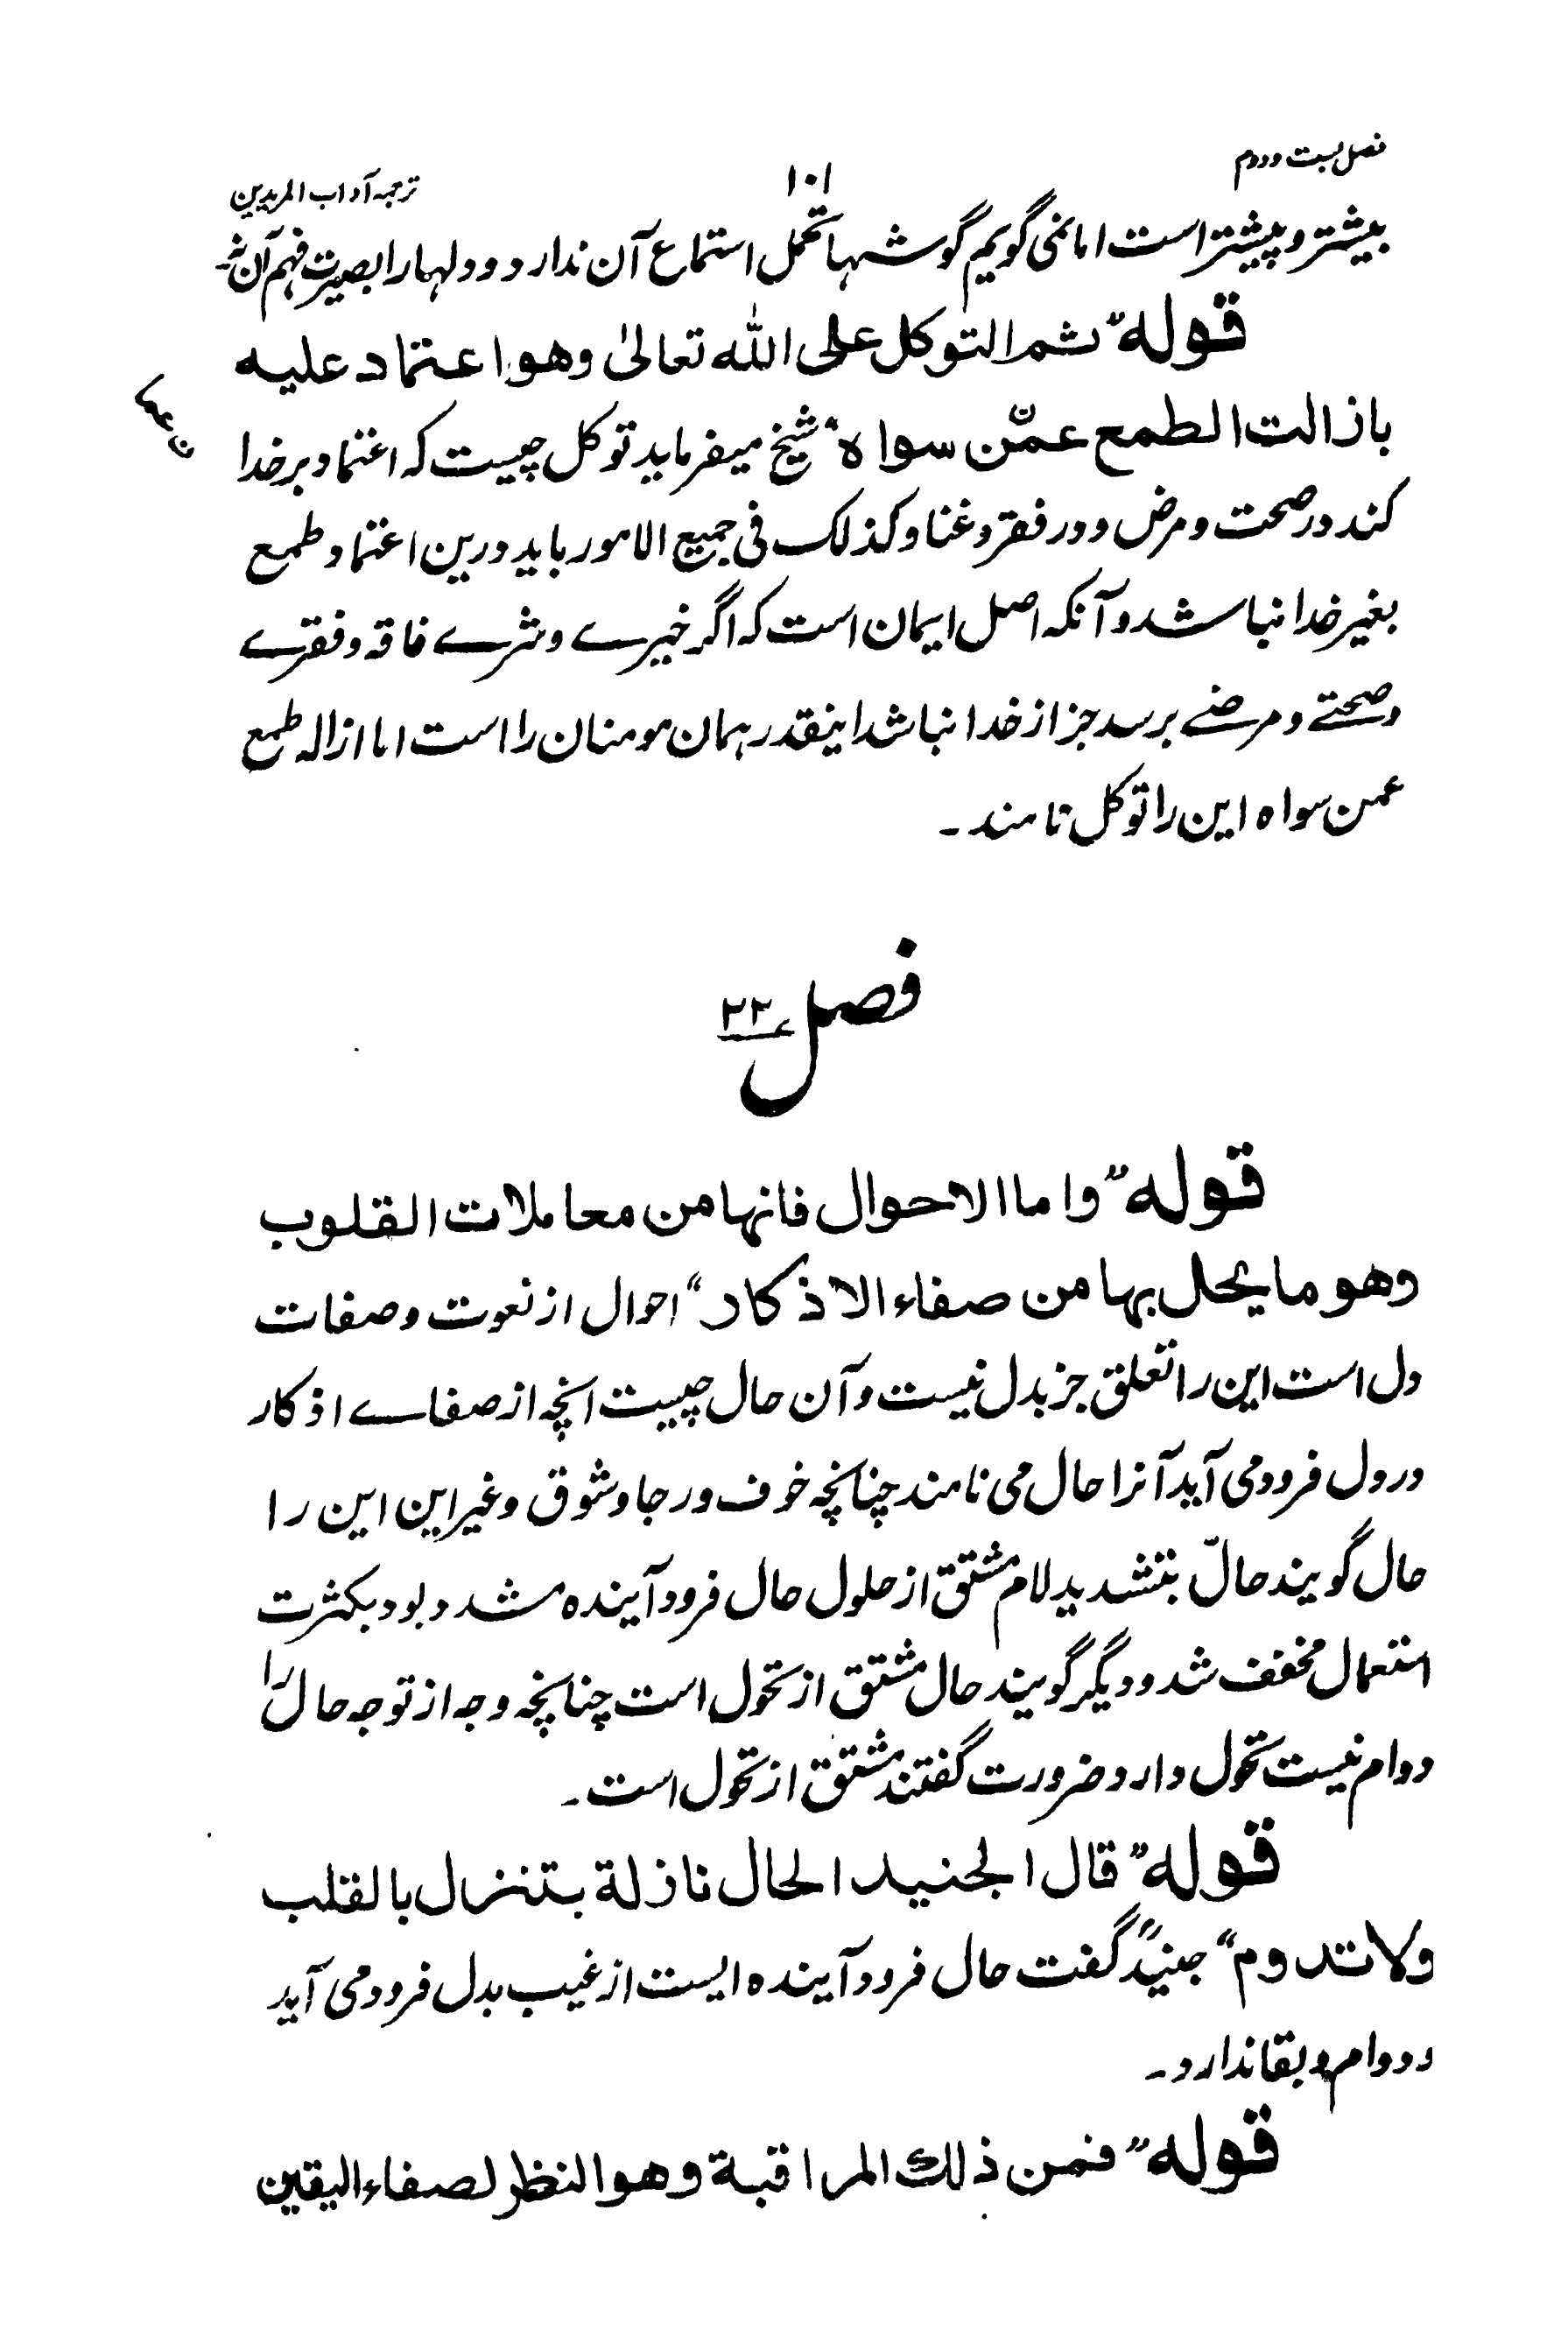 فصل بست و دوم
۱۰۱
ترجمه آداب المریدین
بیشتر و پیشتر است اما نمی گویم گوشها تحمل استماع آن ندارد و دلها را بصیرت فهم آن نے
قوله "ثم التوکل علی اللہ تعالیٰ وهو اعتماد علیه
بازالت الطمع عمّن سواه" شیخ میفرماید توکل چیست که اعتماد بر خدا
کند در صحت و مرض و در فقر و غنا و کذلک فی جمیع الامور باید درین اعتماد طمع
بغیر خدا نباشد و آنکه اصل ایمان است که اگر خیرے و شرے فاقه و فقرے
و صحتے و مرضے برسد جز از خدا نباشد اینقدر همان مومنان را است اما ازاله طمع
عمن سواه این را توکل نامند ۔
فصل ۲۲
قوله "واما الاحوال فانها من معاملات القلوب
وهو ما یحل بها من صفاء الاذکار" احوال از نعوت و صفات
دل است این را تعلق جز بدل نیست و آن حال چیست انچه از صفاے اذکار
در دل فرود می آید آنرا حال می نامند چنانچه خوف و رجا و شوق و غیر این این را
حال گویند حالّ بتشدید لام مشتق از حلول حال فرود آینده مشدد بود بکثرت
استعمال مخفف شد و دیگر گویند حال مشتق از تحول است چنانچه وجه از توجه حال را
دوام نیست تحول دارد ضرورت گفتند مشتق از تحول است ۔
قوله "قال الجنید الحال نازلة بتنزل بالقلب
ولا تدوم" جنیدؒ گفت حال فرود آینده ایست از غیب بدل فرود می آید
و دوام و بقا ندارد ۔
قوله "فمن ذلك المراقبة وهو النظر لصفاء الیقین